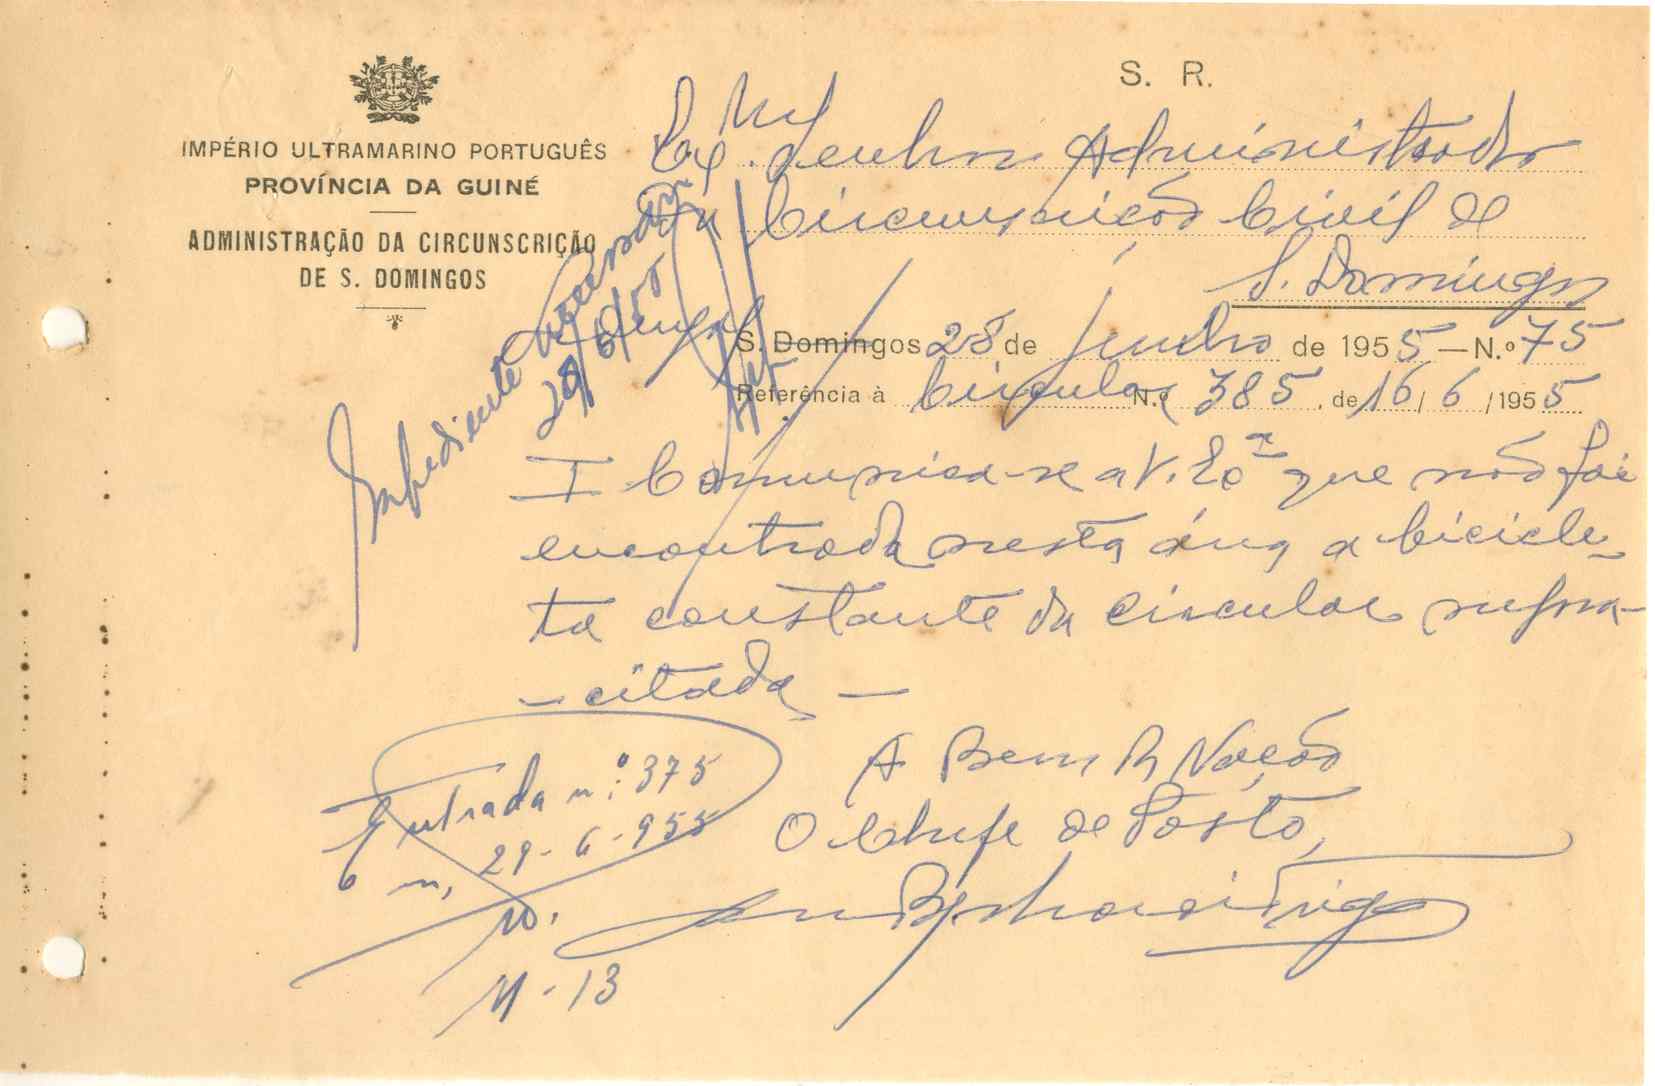 S. R.
IMPÉRIO ULTRAMARINO PORTUGUÊS
PROVÍNCIA DA GUINÉ
ADMINISTRAÇÃO DA CIRCUNSCRIÇÃO
DE S. DOMINGOS
Exmº. Senhor Administrador
da Circunscrição Civil de
S. Domingos
S. Domingos 28 de Junho de 1955 — N.º 75
Referência à Circular N.º 385, de 16/6/1955
Expediente
28/6/55
I Comunica-se a V. Exª que não foi
encontrada nesta área a bicicle-
ta constante da circular supra-
-citada —
A Bem da Nação
O Chefe de Posto,
Entrada n.º 375
29-6-955
M-13